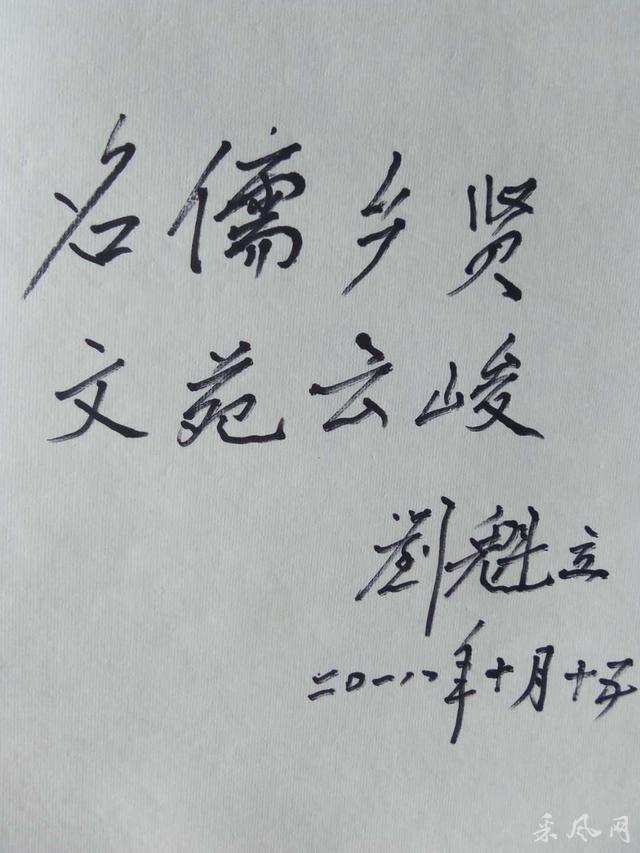 名儒乡贤
文苑云峻
劉魁立
二〇一八年十月十五
采风网